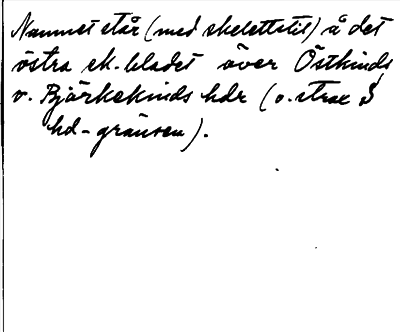 Namnet står (med skelettstil) å det
östra ek.bladet över Östkinds
v. Björkekinds hdr (o. strax S
hd-gränsen).